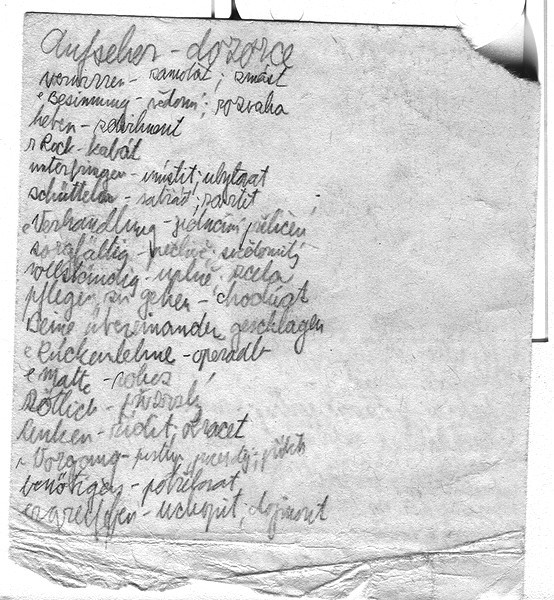 Aufseher - dozorce
verwirren - zamotat; zmást
e Besinnung - vědomí; rozvaha
heben - zdvihnout
r Rock - kabát
unterbringen - umístit; ubytovat
schütteln - zatřást; 
e Verhandlung - jednání; přelíčení
sorgfältig - pečlivě; svědomitý
vollständig - úplně, zcela
pflegen zu gehen - chodívat
Beine übereinander geschlagen
e Rückenlehne - operadlo
e Matte - rohož
Rötlich -
lenken - řídit;
r Vorgang -
benötigen - potřebovat
ergreifen - uchopit; dojmout